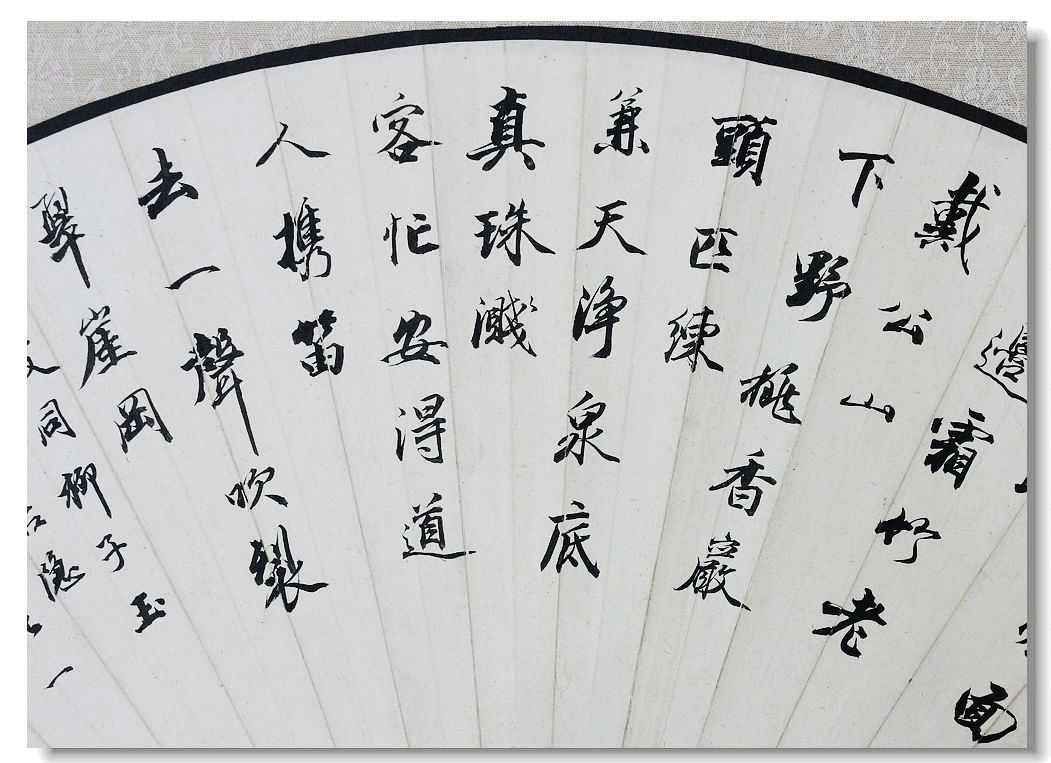 面
邊霜竹老
戴公山
下野桃香巖
頭匹練
兼天淨泉底
真珠濺
客忙安得道
人携笛
去一聲吹裂
翠崖岡
同柳子玉
隱
一